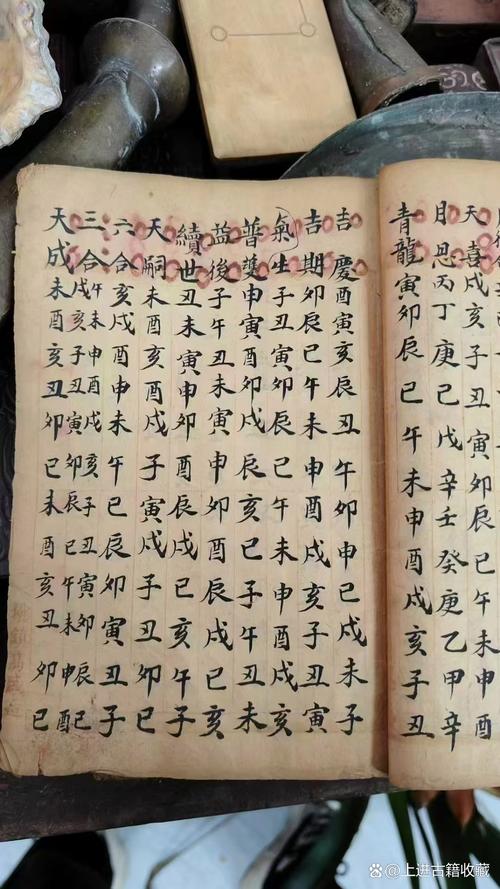 天喜戌亥子丑寅卯辰巳
月恩丙丁庚己戊辛壬癸庚乙甲辛
青龍寅卯辰巳午未申酉戌亥子丑
吉慶酉寅亥辰丑午卯申巳戌未子
吉期卯辰巳午未申酉戌亥子丑寅
氣生子丑寅卯辰巳午未申酉戌亥
普護申寅酉卯戌辰亥巳子午丑未
益後子午丑未寅申卯酉辰戌巳亥
續世丑未寅申卯酉辰戌巳亥午子
天嗣未酉亥酉戌子寅戌子丑卯巳
六合亥戌酉申未午巳辰卯寅丑子
三合午未申酉戌亥子丑寅卯辰巳
戌亥子丑寅卯辰巳午未申酉
天成未酉亥丑卯巳未酉亥丑卯巳
上进古籍收藏